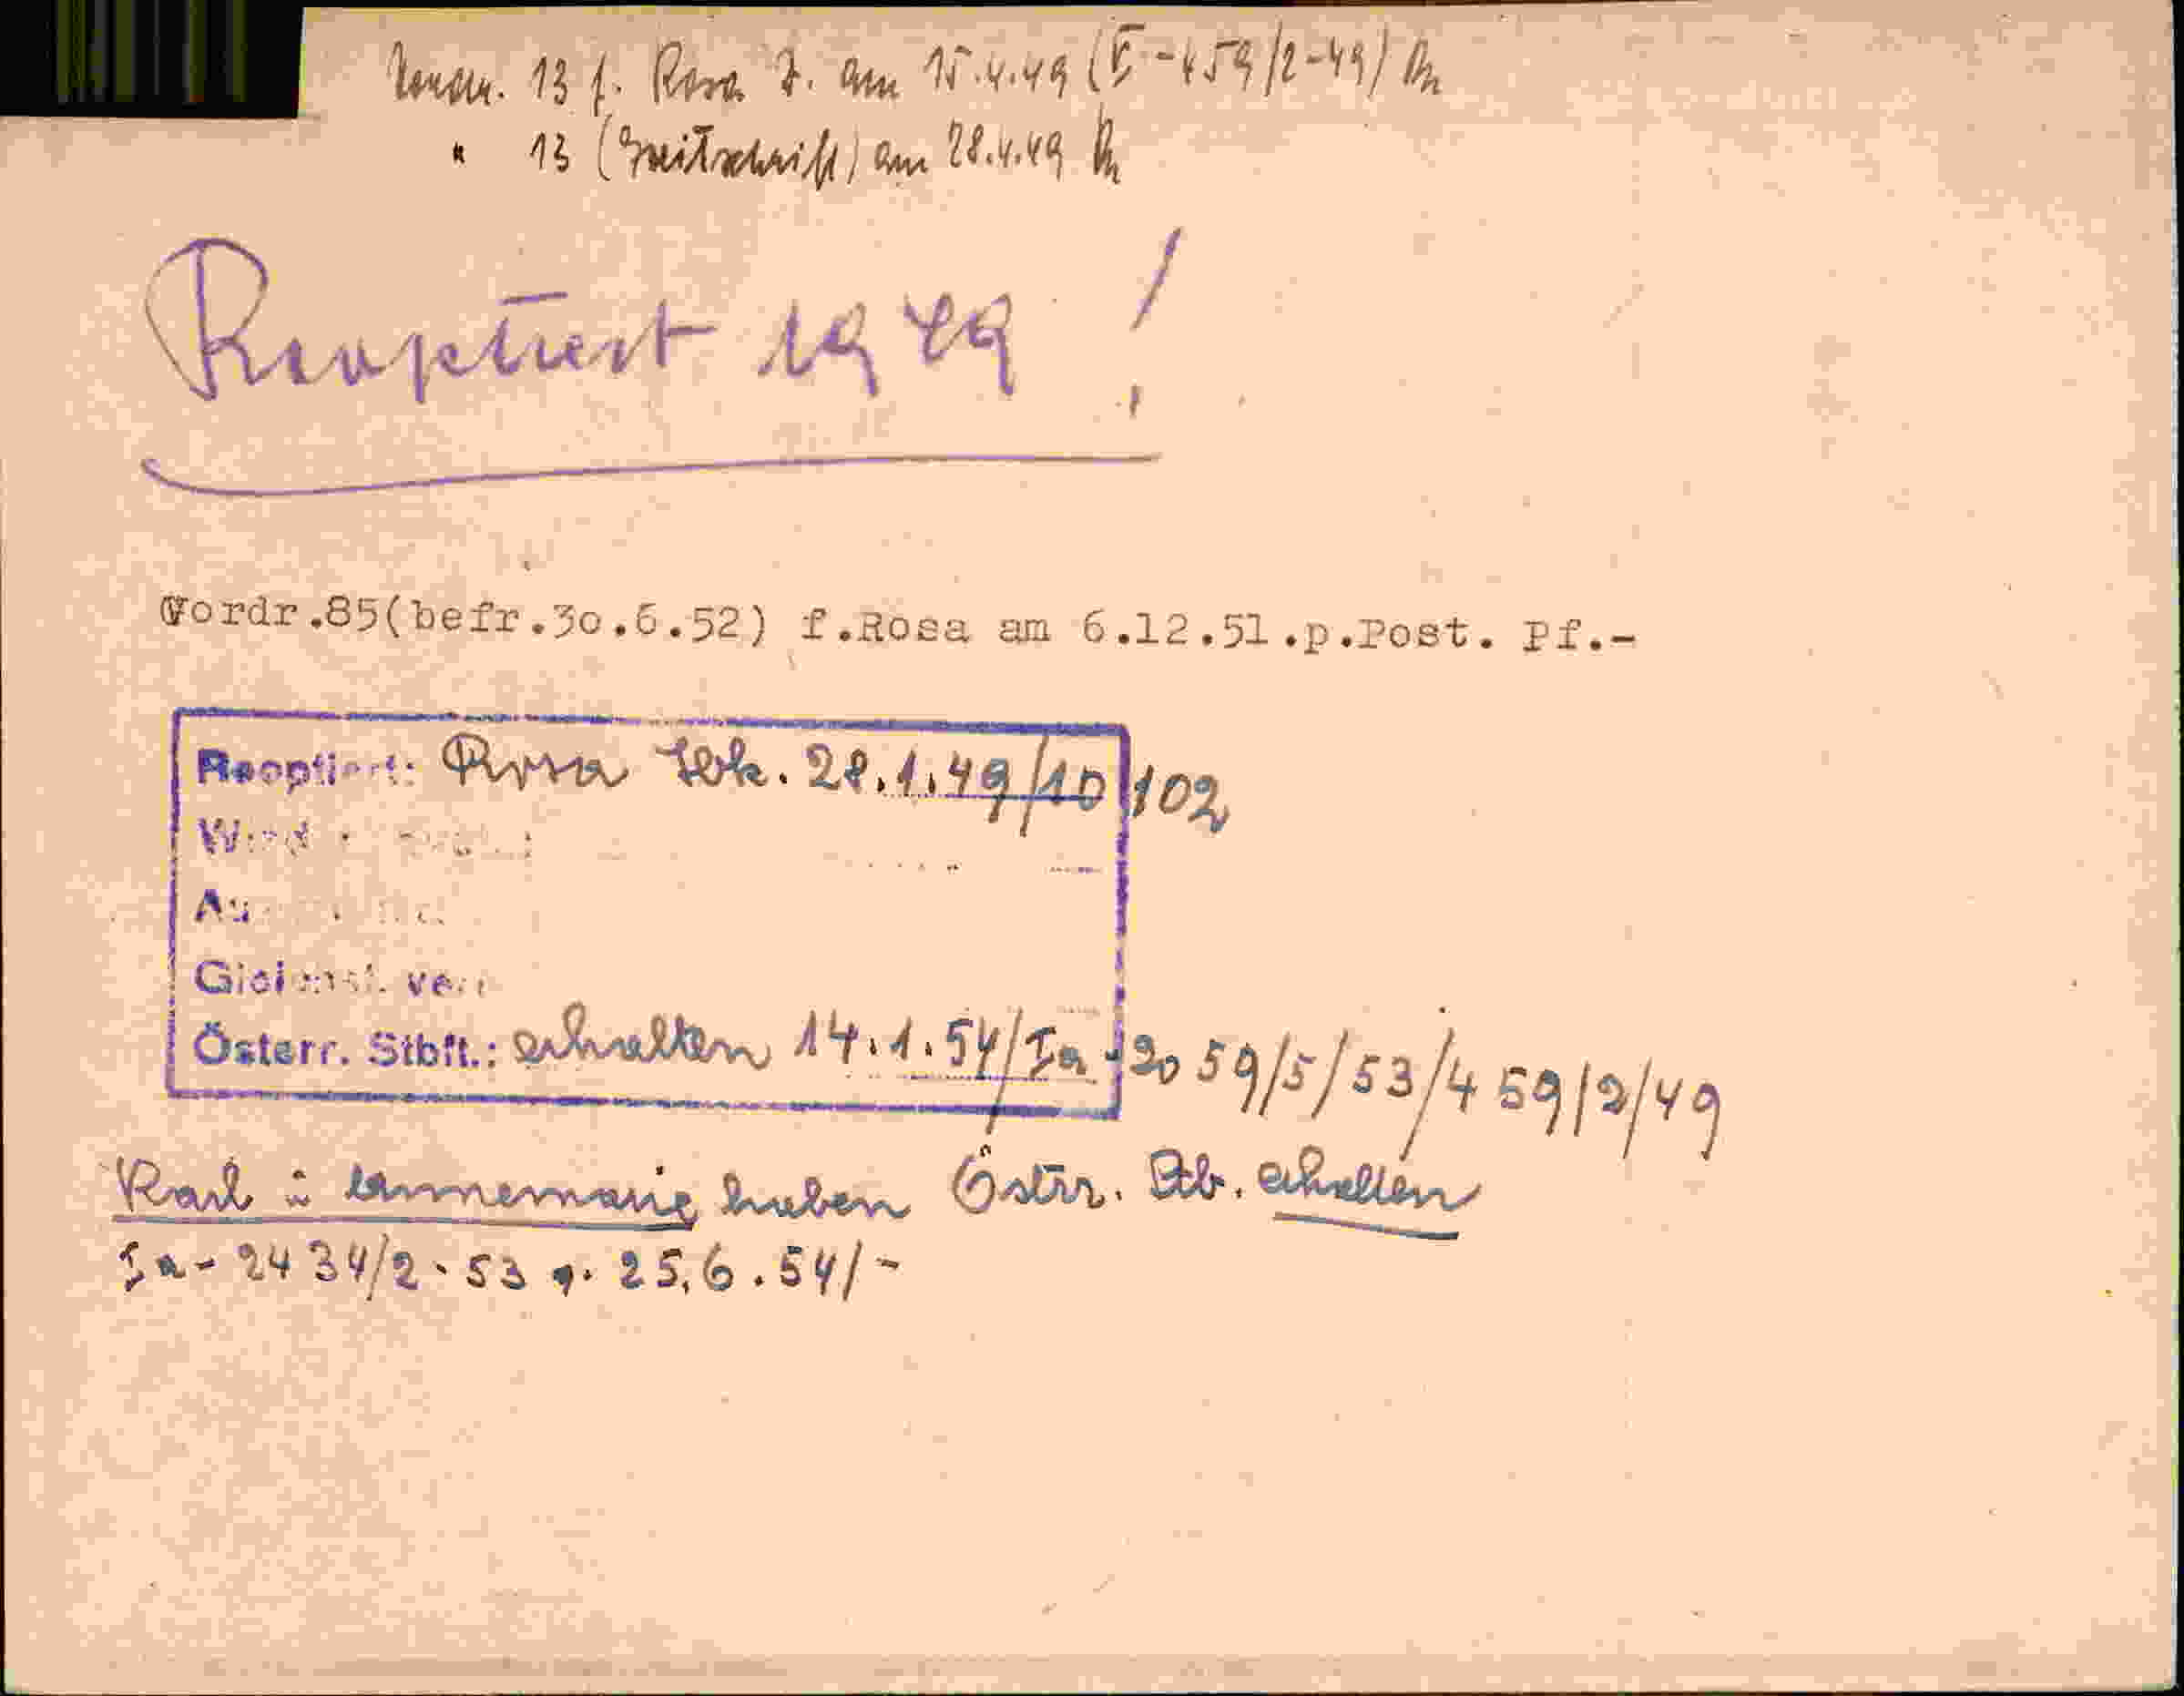 Vordr. 13 f. Rosa Z. am 15.4.49 (V-459/2-49)
" 13 (Zweitschrift) am 28.4.49
Reoptiert 1949!
Vordr.85(befr.30.6.52) f.Rosa am 6.12.51.p.Post. Pf.-
Reoptiert: Rosa Urk. 28.1.49/10/102
Österr. Stbft.: erhalten 14.1.54/Ia-2059/5/53/459/2/49
Karl u. Annemarie haben Österr. Stb. erhalten
Ia-2434/2-53 v. 25.6.54/-